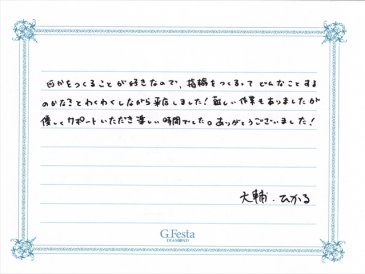 何かをつくることが好きなので、指輪をつくるってどんなことする
のかなぁとわくわくしながら来店しました！難しい作業もありましたが
優しくサポートいただき楽しい時間でした。ありがとうございました！
大輔・ひかる
G.Festa
DIAMOND